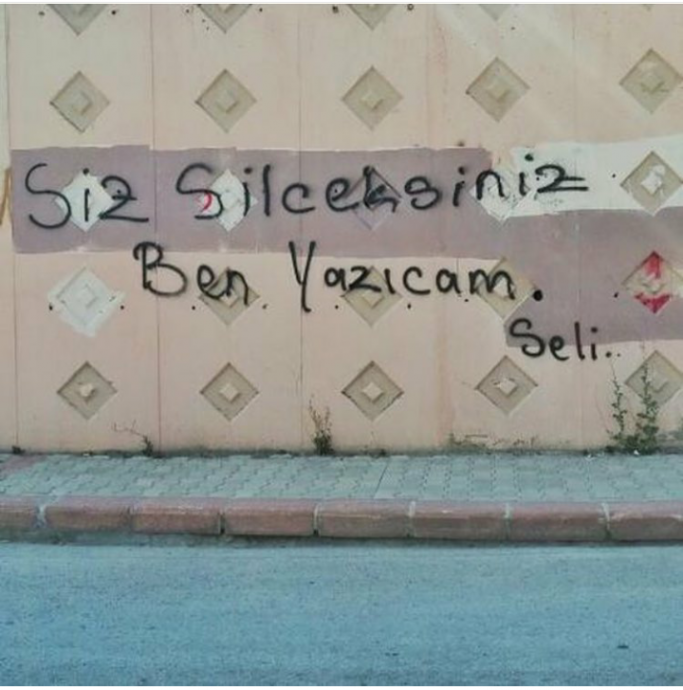 Siz Silceksiniz
Ben Yazıcam.
Seli..